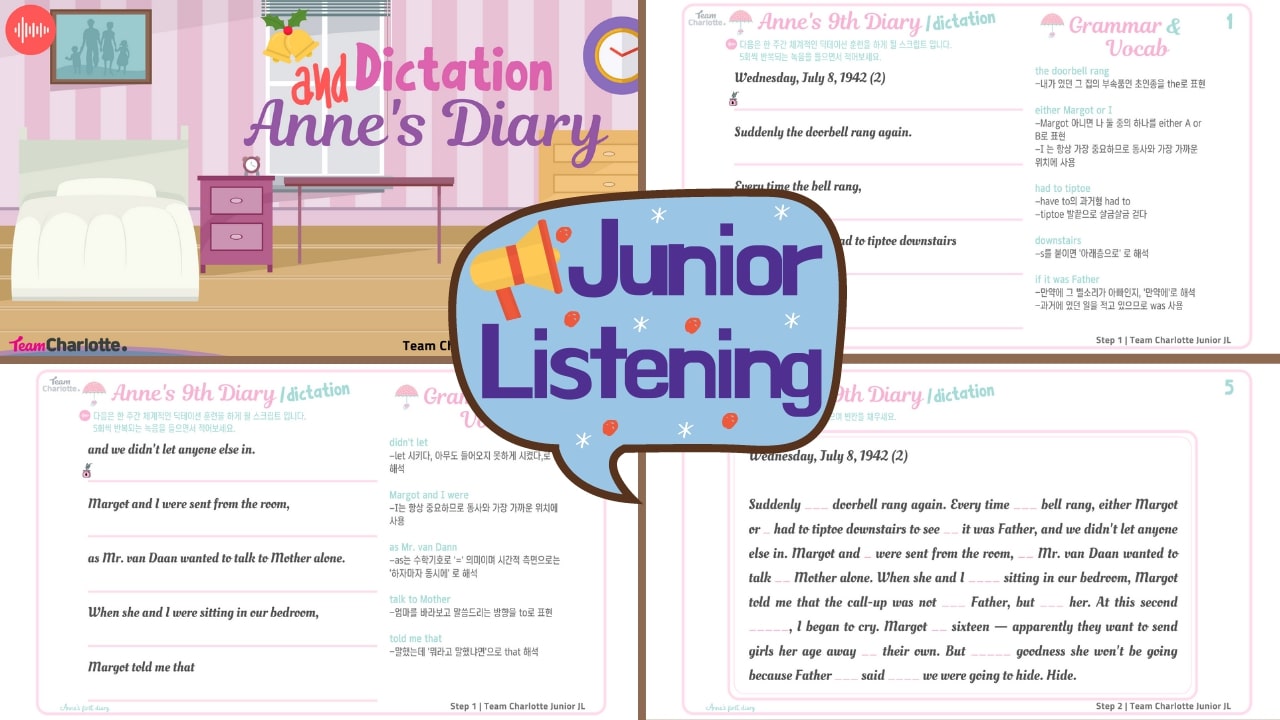 and Dictation
Anne's Diary
TeamCharlotte.
Team
Team Charlotte.
Anne's 9th Diary /dictation
다음은 한 주간 체계적인 딕테이션 훈련을 하게 될 스크립트 입니다.
5회씩 반복되는 녹음을 들으면서 적어보세요.
Wednesday, July 8, 1942 (2)
Suddenly the doorbell rang again.
Every time the bell rang,
had to tiptoe downstairs
Grammar &
Vocab
1
the doorbell rang
-내가 있던 그 집의 부속품인 초인종을 the로 표현
either Margot or I
-Margot 아니면 나 둘 중의 하나를 either A or
B로 표현
-I 는 항상 가장 중요하므로 동사와 가장 가까운
위치에 사용
had to tiptoe
-have to의 과거형 had to
-tiptoe 발끝으로 살금살금 걷다
downstairs
-s를 붙이면 '아래층으로' 로 해석
if it was Father
-만약에 그 벨소리가 아빠인지, '만약에'로 해석
-과거에 있던 일을 적고 있으므로 was 사용
Step 1 | Team Charlotte Junior JL
Junior
Listening
Team Charlotte.
Anne's 9th Diary /dictation
다음은 한 주간 체계적인 딕테이션 훈련을 하게 될 스크립트 입니다.
5회씩 반복되는 녹음을 들으면서 적어보세요.
and we didn't let anyone else in.
Margot and I were sent from the room,
as Mr. van Daan wanted to talk to Mother alone.
When she and I were sitting in our bedroom,
Margot told me that
didn't let
-let 시키다, 아무도 들어오지 못하게 시켰다,로
해석
Margot and I were
-I는 항상 중요하므로 동사와 가장 가까운 위치에
사용
as Mr. van Dann
-as는 수학기호로 '=' 의미이며 시간적 측면으로는
'하자마자 동시에' 로 해석
talk to Mother
-엄마를 바라보고 말씀드리는 방향을 to로 표현
told me that
-말했는데 '뭐라고 말했냐면'으로 that 해석
Anne's first diary
Step 1 | Team Charlotte Junior JL
9th Diary /dictation
5
빈칸을 채우세요.
Wednesday, July 8, 1942 (2)
Suddenly ___ doorbell rang again. Every time ___ bell rang, either Margot
or _ had to tiptoe downstairs to see __ it was Father, and we didn't let anyone
else in. Margot and _ were sent from the room, __ Mr. van Daan wanted to
talk __ Mother alone. When she and I ____ sitting in our bedroom, Margot
told me that the call-up was not ___ Father, but ___ her. At this second
_____, I began to cry. Margot __ sixteen — apparently they want to send
girls her age away __ their own. But _____ goodness she won't be going
because Father ___ said ____ we were going to hide. Hide.
Anne's first diary
Step 2 | Team Charlotte Junior JL